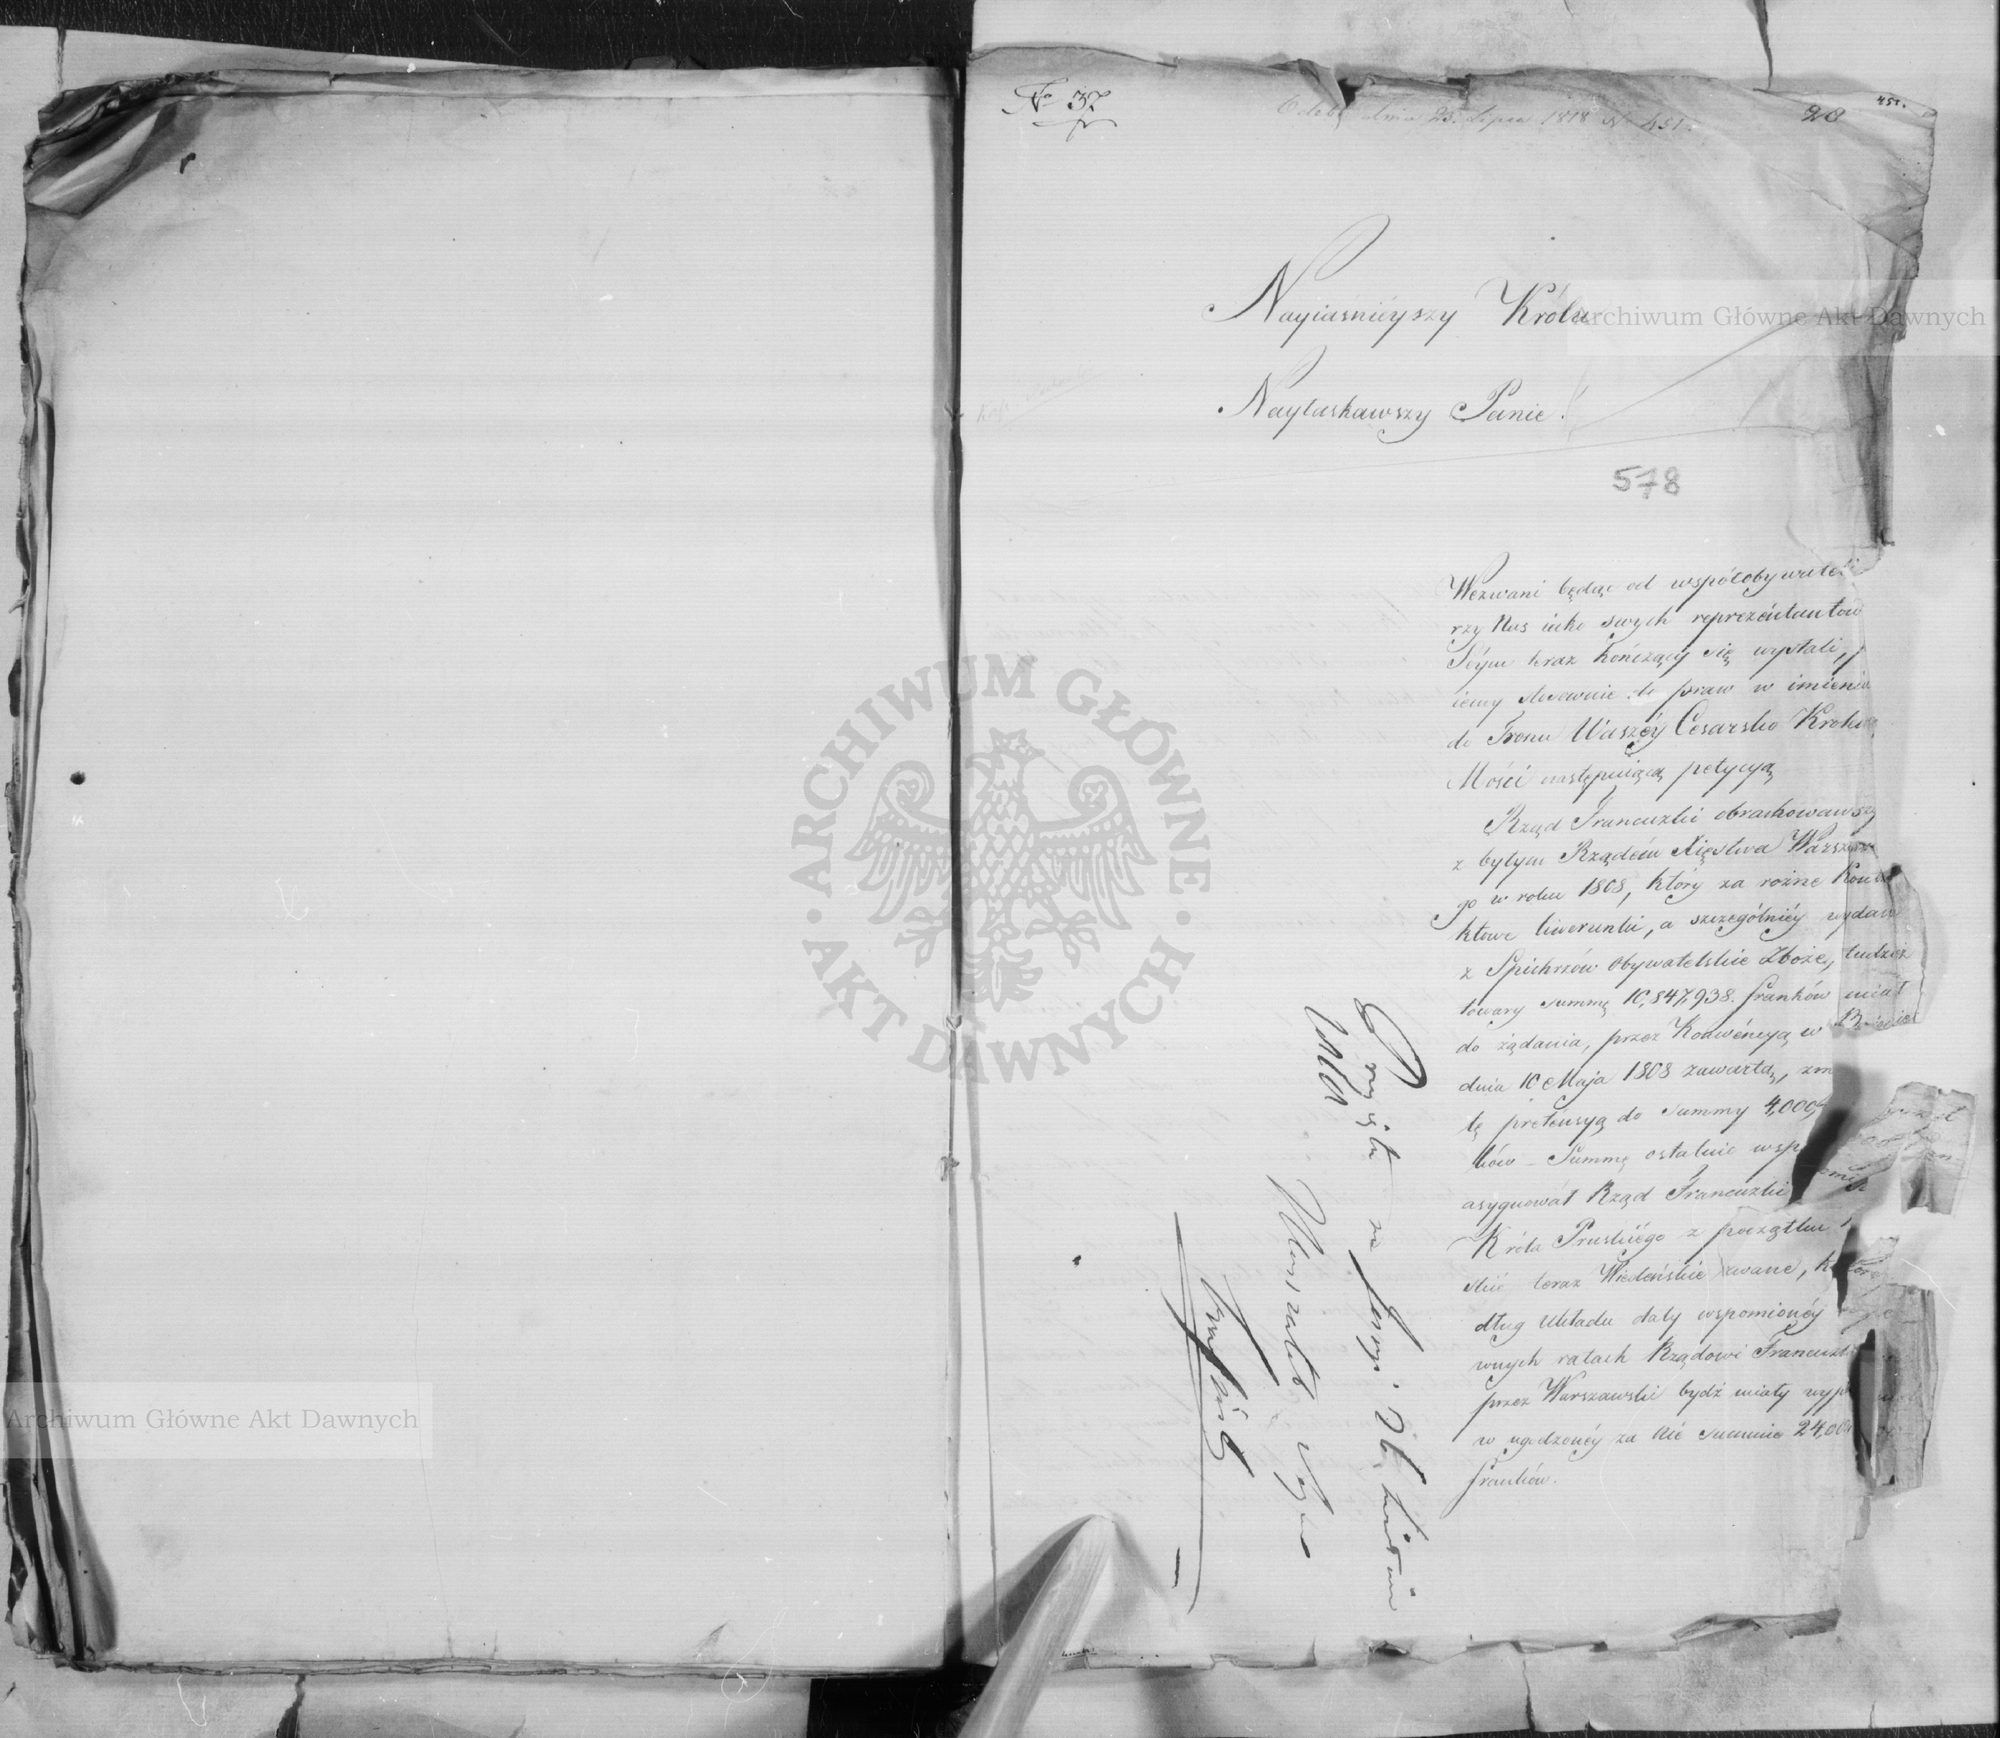 No 37
Odebr. dnia 23. Lipca 1818 No 451.
28
451.
Nayiaśnieyszy Królu
Nayłaskawszy Panie!
578
Wezwani będąc od współobywateli
rzy Nas iako swych reprezentantów
Séym teraz kończący się wysłali,
iemy stosownie do praw w imieniu
do Tronu Waszéy Cesarsko Królew
Mości następuiącą petycyą
Rząd Francuzki obrachowawszy
z byłym Rządem Xięstwa Warszaw
go w roku 1808, który za rożne Kontra
ktowe liwerunki, a szczególniéy wydane
z Spichrzów Obywatelskie Zboże, tudzież
towary summę 10,847,938. franków miał
do żądania, przez Konwéncyą w
dnia 10 Maja 1808 zawartą, zm
tę pretensyą do summy 4,000,
ków – Summę ostatnie wsp
asygnował Rząd Francuzki
Króla Pruskiégo z początku
skie teraz Wiedeńskie zwane, które
dług Układu daty wspomionéy
wnych ratach Rządowi Francuzk
przez Warszawski bydź miały wyp
w ugodzonéy za nié summie 24,000
franków.
Przyięta na Sessyi 26 Kwietnia
1818
Marszałek Seymu